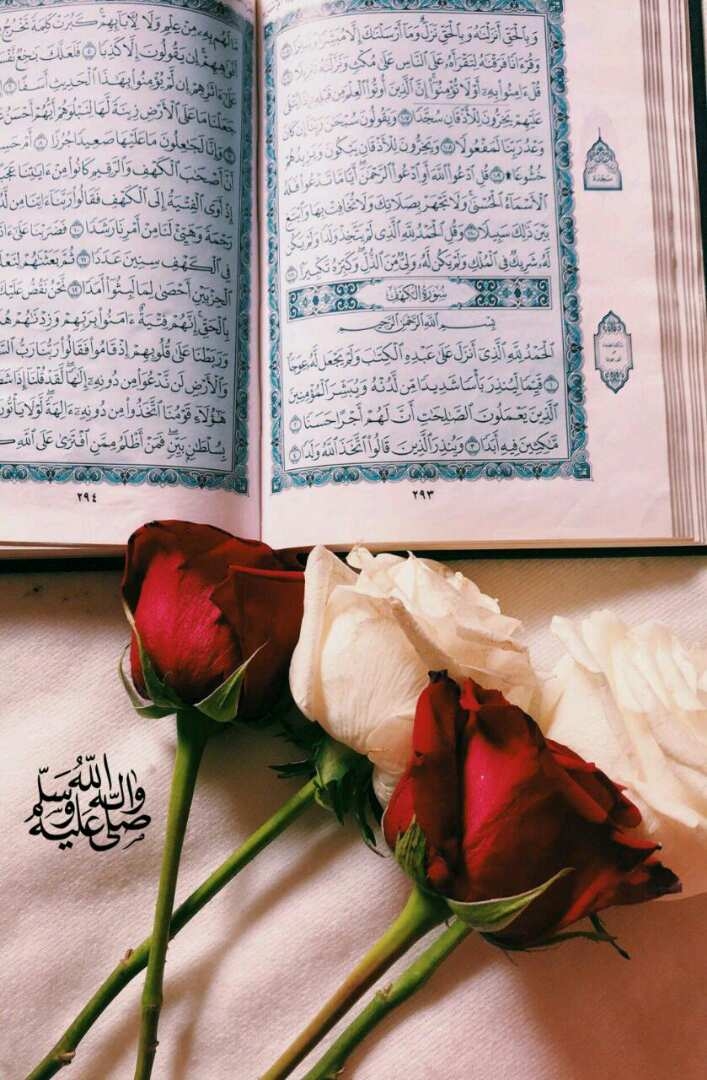 وَبِٱلْحَقِّ أَنزَلْنَٰهُ وَبِٱلْحَقِّ نَزَلَ وَمَآ أَرْسَلْنَٰكَ إِلَّا مُبَشِّرًا وَنَذِيرًا ١٠٥
وَقُرْءَانًا فَرَقْنَٰهُ لِتَقْرَأَهُۥ عَلَى ٱلنَّاسِ عَلَىٰ مُكْثٍ وَنَزَّلْنَٰهُ تَنزِيلًا ١٠٦
قُلْ ءَامِنُوا۟ بِهِۦٓ أَوْ لَا تُؤْمِنُوٓا۟ إِنَّ ٱلَّذِينَ أُوتُوا۟ ٱلْعِلْمَ مِن قَبْلِهِۦٓ إِذَا يُتْلَىٰ
عَلَيْهِمْ يَخِرُّونَ لِلْأَذْقَانِ سُجَّدًا ١٠٧ وَيَقُولُونَ سُبْحَٰنَ رَبِّنَآ إِن كَانَ
وَعْدُ رَبِّنَا لَمَفْعُولًا ١٠٨ وَيَخِرُّونَ لِلْأَذْقَانِ يَبْكُونَ وَيَزِيدُهُمْ
خُشُوعًا ۩ ١٠٩ قُلِ ٱدْعُوا۟ ٱللَّهَ أَوِ ٱدْعُوا۟ ٱلرَّحْمَٰنَ أَيًّا مَّا تَدْعُوا۟ فَلَهُ
ٱلْأَسْمَآءُ ٱلْحُسْنَىٰ وَلَا تَجْهَرْ بِصَلَاتِكَ وَلَا تُخَافِتْ بِهَا وَٱبْتَغِ
بَيْنَ ذَٰلِكَ سَبِيلًا ١١٠ وَقُلِ ٱلْحَمْدُ لِلَّهِ ٱلَّذِى لَمْ يَتَّخِذْ وَلَدًا وَلَمْ يَكُن
لَّهُۥ شَرِيكٌ فِى ٱلْمُلْكِ وَلَمْ يَكُن لَّهُۥ وَلِىٌّ مِّنَ ٱلذُّلِّ وَكَبِّرْهُ تَكْبِيرًا ١١١
سُورَةُ الكَهْفِ
بِسْمِ ٱللَّهِ ٱلرَّحْمَٰنِ ٱلرَّحِيمِ
ٱلْحَمْدُ لِلَّهِ ٱلَّذِىٓ أَنزَلَ عَلَىٰ عَبْدِهِ ٱلْكِتَٰبَ وَلَمْ يَجْعَل لَّهُۥ عِوَجَا
١ قَيِّمًا لِّيُنذِرَ بَأْسًا شَدِيدًا مِّن لَّدُنْهُ وَيُبَشِّرَ ٱلْمُؤْمِنِينَ
ٱلَّذِينَ يَعْمَلُونَ ٱلصَّٰلِحَٰتِ أَنَّ لَهُمْ أَجْرًا حَسَنًا ٢
مَّٰكِثِينَ فِيهِ أَبَدًا ٣ وَيُنذِرَ ٱلَّذِينَ قَالُوا۟ ٱتَّخَذَ ٱللَّهُ وَلَدًا ٤
٢٩٣
سجدة
مَّا لَهُم بِهِۦ مِنْ عِلْمٍ وَلَا لِءَابَآئِهِمْ كَبُرَتْ كَلِمَةً تَخْرُجُ
أَفْوَٰهِهِمْ إِن يَقُولُونَ إِلَّا كَذِبًا ٥ فَلَعَلَّكَ بَٰخِعٌ نَّفْسَ
عَلَىٰٓ ءَاثَٰرِهِمْ إِن لَّمْ يُؤْمِنُوا۟ بِهَٰذَا ٱلْحَدِيثِ أَسَفًا ٦
جَعَلْنَا مَا عَلَى ٱلْأَرْضِ زِينَةً لَّهَا لِنَبْلُوَهُمْ أَيُّهُمْ أَحْسَنُ
٧ وَإِنَّا لَجَٰعِلُونَ مَا عَلَيْهَا صَعِيدًا جُرُزًا ٨ أَمْ حَسِبْ
أَنَّ أَصْحَٰبَ ٱلْكَهْفِ وَٱلرَّقِيمِ كَانُوا۟ مِنْ ءَايَٰتِنَا عَجَبًا
إِذْ أَوَى ٱلْفِتْيَةُ إِلَى ٱلْكَهْفِ فَقَالُوا۟ رَبَّنَآ ءَاتِنَا مِن لَّ
رَحْمَةً وَهَيِّئْ لَنَا مِنْ أَمْرِنَا رَشَدًا ١٠ فَضَرَبْنَا عَلَىٰٓ ءَاذَ
فِى ٱلْكَهْفِ سِنِينَ عَدَدًا ١١ ثُمَّ بَعَثْنَٰهُمْ لِنَعْلَ
ٱلْحِزْبَيْنِ أَحْصَىٰ لِمَا لَبِثُوٓا۟ أَمَدًا ١٢ نَّحْنُ نَقُصُّ عَلَيْكَ
بِٱلْحَقِّ إِنَّهُمْ فِتْيَةٌ ءَامَنُوا۟ بِرَبِّهِمْ وَزِدْنَٰهُمْ هُ
وَرَبَطْنَا عَلَىٰ قُلُوبِهِمْ إِذْ قَامُوا۟ فَقَالُوا۟ رَبُّنَا رَبُّ ٱلسَّ
وَٱلْأَرْضِ لَن نَّدْعُوَا۟ مِن دُونِهِۦٓ إِلَٰهًا لَّقَدْ قُلْنَآ إِذًا شَطَ
هَٰٓؤُلَآءِ قَوْمُنَا ٱتَّخَذُوا۟ مِن دُونِهِۦٓ ءَالِهَةً لَّوْلَا يَأْتُونَ
بِسُلْطَٰنٍۭ بَيِّنٍ فَمَنْ أَظْلَمُ مِمَّنِ ٱفْتَرَىٰ عَلَى ٱللَّهِ كَ
٢٩٤
صلى الله عليه وآله وسلم